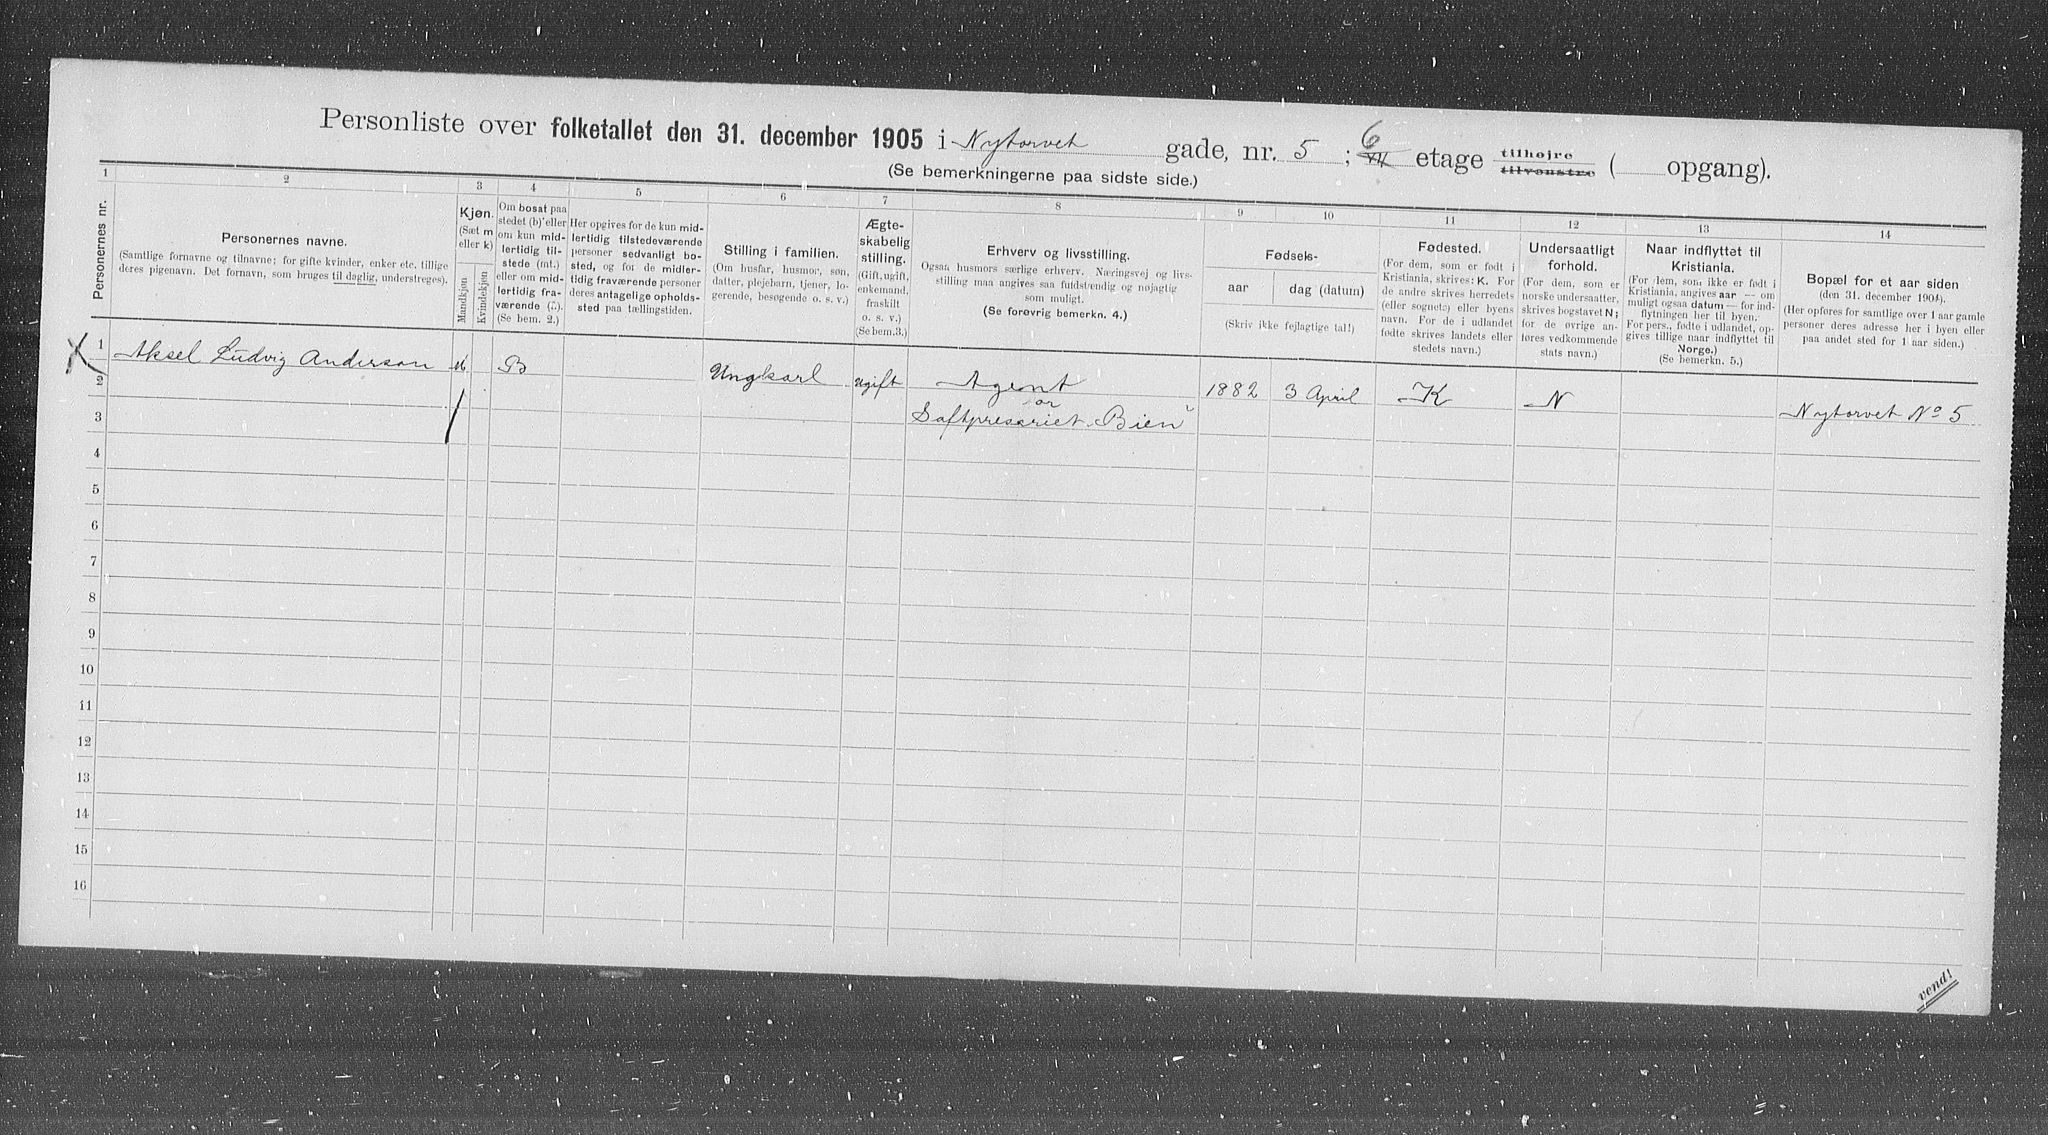 Personliste over folketallet den 31. december 1905 i Nytorvet gade, nr. 5; 6 VII etage tilhøjre tilvenstre ( opgang).
(Se bemerkningerne paa sidste side.)
1 2 3 4 5 6 7 8 9 10 11 12 13 14
Personernes nr.
Personernes navne.
(Samtlige fornavne og tilnavne; for gifte kvinder, enker etc. tillige
deres pigenavn. Det fornavn, som bruges til daglig, understreges).
Kjøn.
(Sæt m
eller k)
Mandkjøn
Kvindekjøn
Om bosat paa
stedet (b) eller
om kun mid-
lertidig til-
stede (mt.)
eller om mid-
lertidig fra-
værende (f.).
(Se bem. 2.)
Her opgives for de kun mid-
lertidig tilstedeværende
personer sedvanligt bo-
sted, og for de midler-
tidig fraværende personer
deres antagelige opholds-
sted paa tællingstiden.
Stilling i familien.
(Om husfar, husmor, søn,
datter, plejebarn, tjener, lo-
gerende, besøgende o. s. v.)
Ægte-
skabelig
stilling.
(Gift, ugift,
enkemand,
fraskilt
o. s. v.)
(Se bem. 3.)
Erhverv og livsstilling.
Ogsaa husmors særlige erhverv. Næringsvej og livs-
stilling maa angives saa fuldstændig og nøjagtig
som muligt.
(Se forøvrig bemerkn. 4.)
Fødsels-
aar
dag (datum)
(Skriv ikke fejlagtige tal!)
Fødested.
(For dem, som er født i
Kristiania, skrives: K. For
de andre skrives herredets
(eller sognets) eller byens
navn. For de i udlandet
fødte skrives landets eller
stedets navn.)
Undersaatligt
forhold.
(For dem, som er
norske undersaatter,
skrives bogstavet N;
for de øvrige an-
føres vedkommende
stats navn.)
Naar indflyttet til
Kristiania.
(For dem, som ikke er født i
Kristiania, angives aar — om
muligt ogsaa datum — for ind-
flytningen her til byen.
For pers., fødte i udlandet, op-
gives tillige naar indflyttet til
Norge.)
(Se bemerkn. 5.)
Bopæl for et aar siden
(den 31. december 1904.)
(Her opføres for samtlige over 1 aar gamle
personer deres adresse her i byen eller
paa andet sted for 1 aar siden.)
X 1 Aksel Ludvig Anderson M B Ungkarl ugift Agent 1882 3 April K N Nytorvet No 5
2 for
Saftpresseriet „Bien"
3
4
5
6
7
8
9
10
11
12
13
14
15
16
vend!